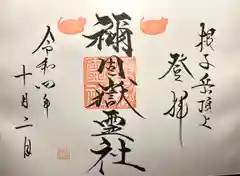 根子岳頂上
登拝
禰固嶽霊社
令和四年
十月二日